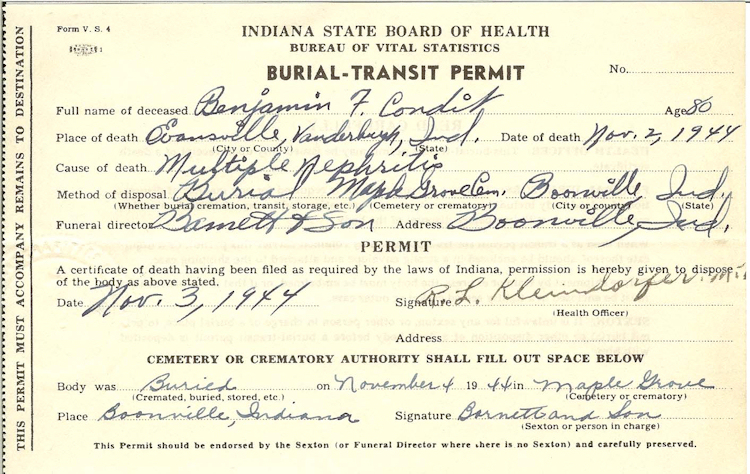 Form V. S. 4
INDIANA STATE BOARD OF HEALTH
BUREAU OF VITAL STATISTICS
BURIAL-TRANSIT PERMIT
No.
Full name of deceased Benjamin F. Condit Age 80
Place of death Evansville, Vanderburgh, Ind. Date of death Nov. 2, 1944
(City or County) (State)
Cause of death Multiple Nephritis
Method of disposal Burial Maple Grove Cem. Boonville, Ind.
(Whether burial, cremation, transit, storage, etc.) (Cemetery or crematory) (City or county) (State)
Funeral director Barnett & Son Address Boonville, Ind.
PERMIT
A certificate of death having been filed as required by the laws of Indiana, permission is hereby given to dispose
of the body as above stated.
Date Nov. 3, 1944 Signature L. Kleindorfer
(Health Officer)
Address
CEMETERY OR CREMATORY AUTHORITY SHALL FILL OUT SPACE BELOW
Body was Buried on November 4 1944 in Maple Grove
(Cremated, buried, stored, etc.) (Cemetery or crematory)
Place Boonville, Indiana Signature Barnett and Son
(Sexton or person in charge)
This Permit should be endorsed by the Sexton (or Funeral Director where there is no Sexton) and carefully preserved.
THIS PERMIT MUST ACCOMPANY REMAINS TO DESTINATION